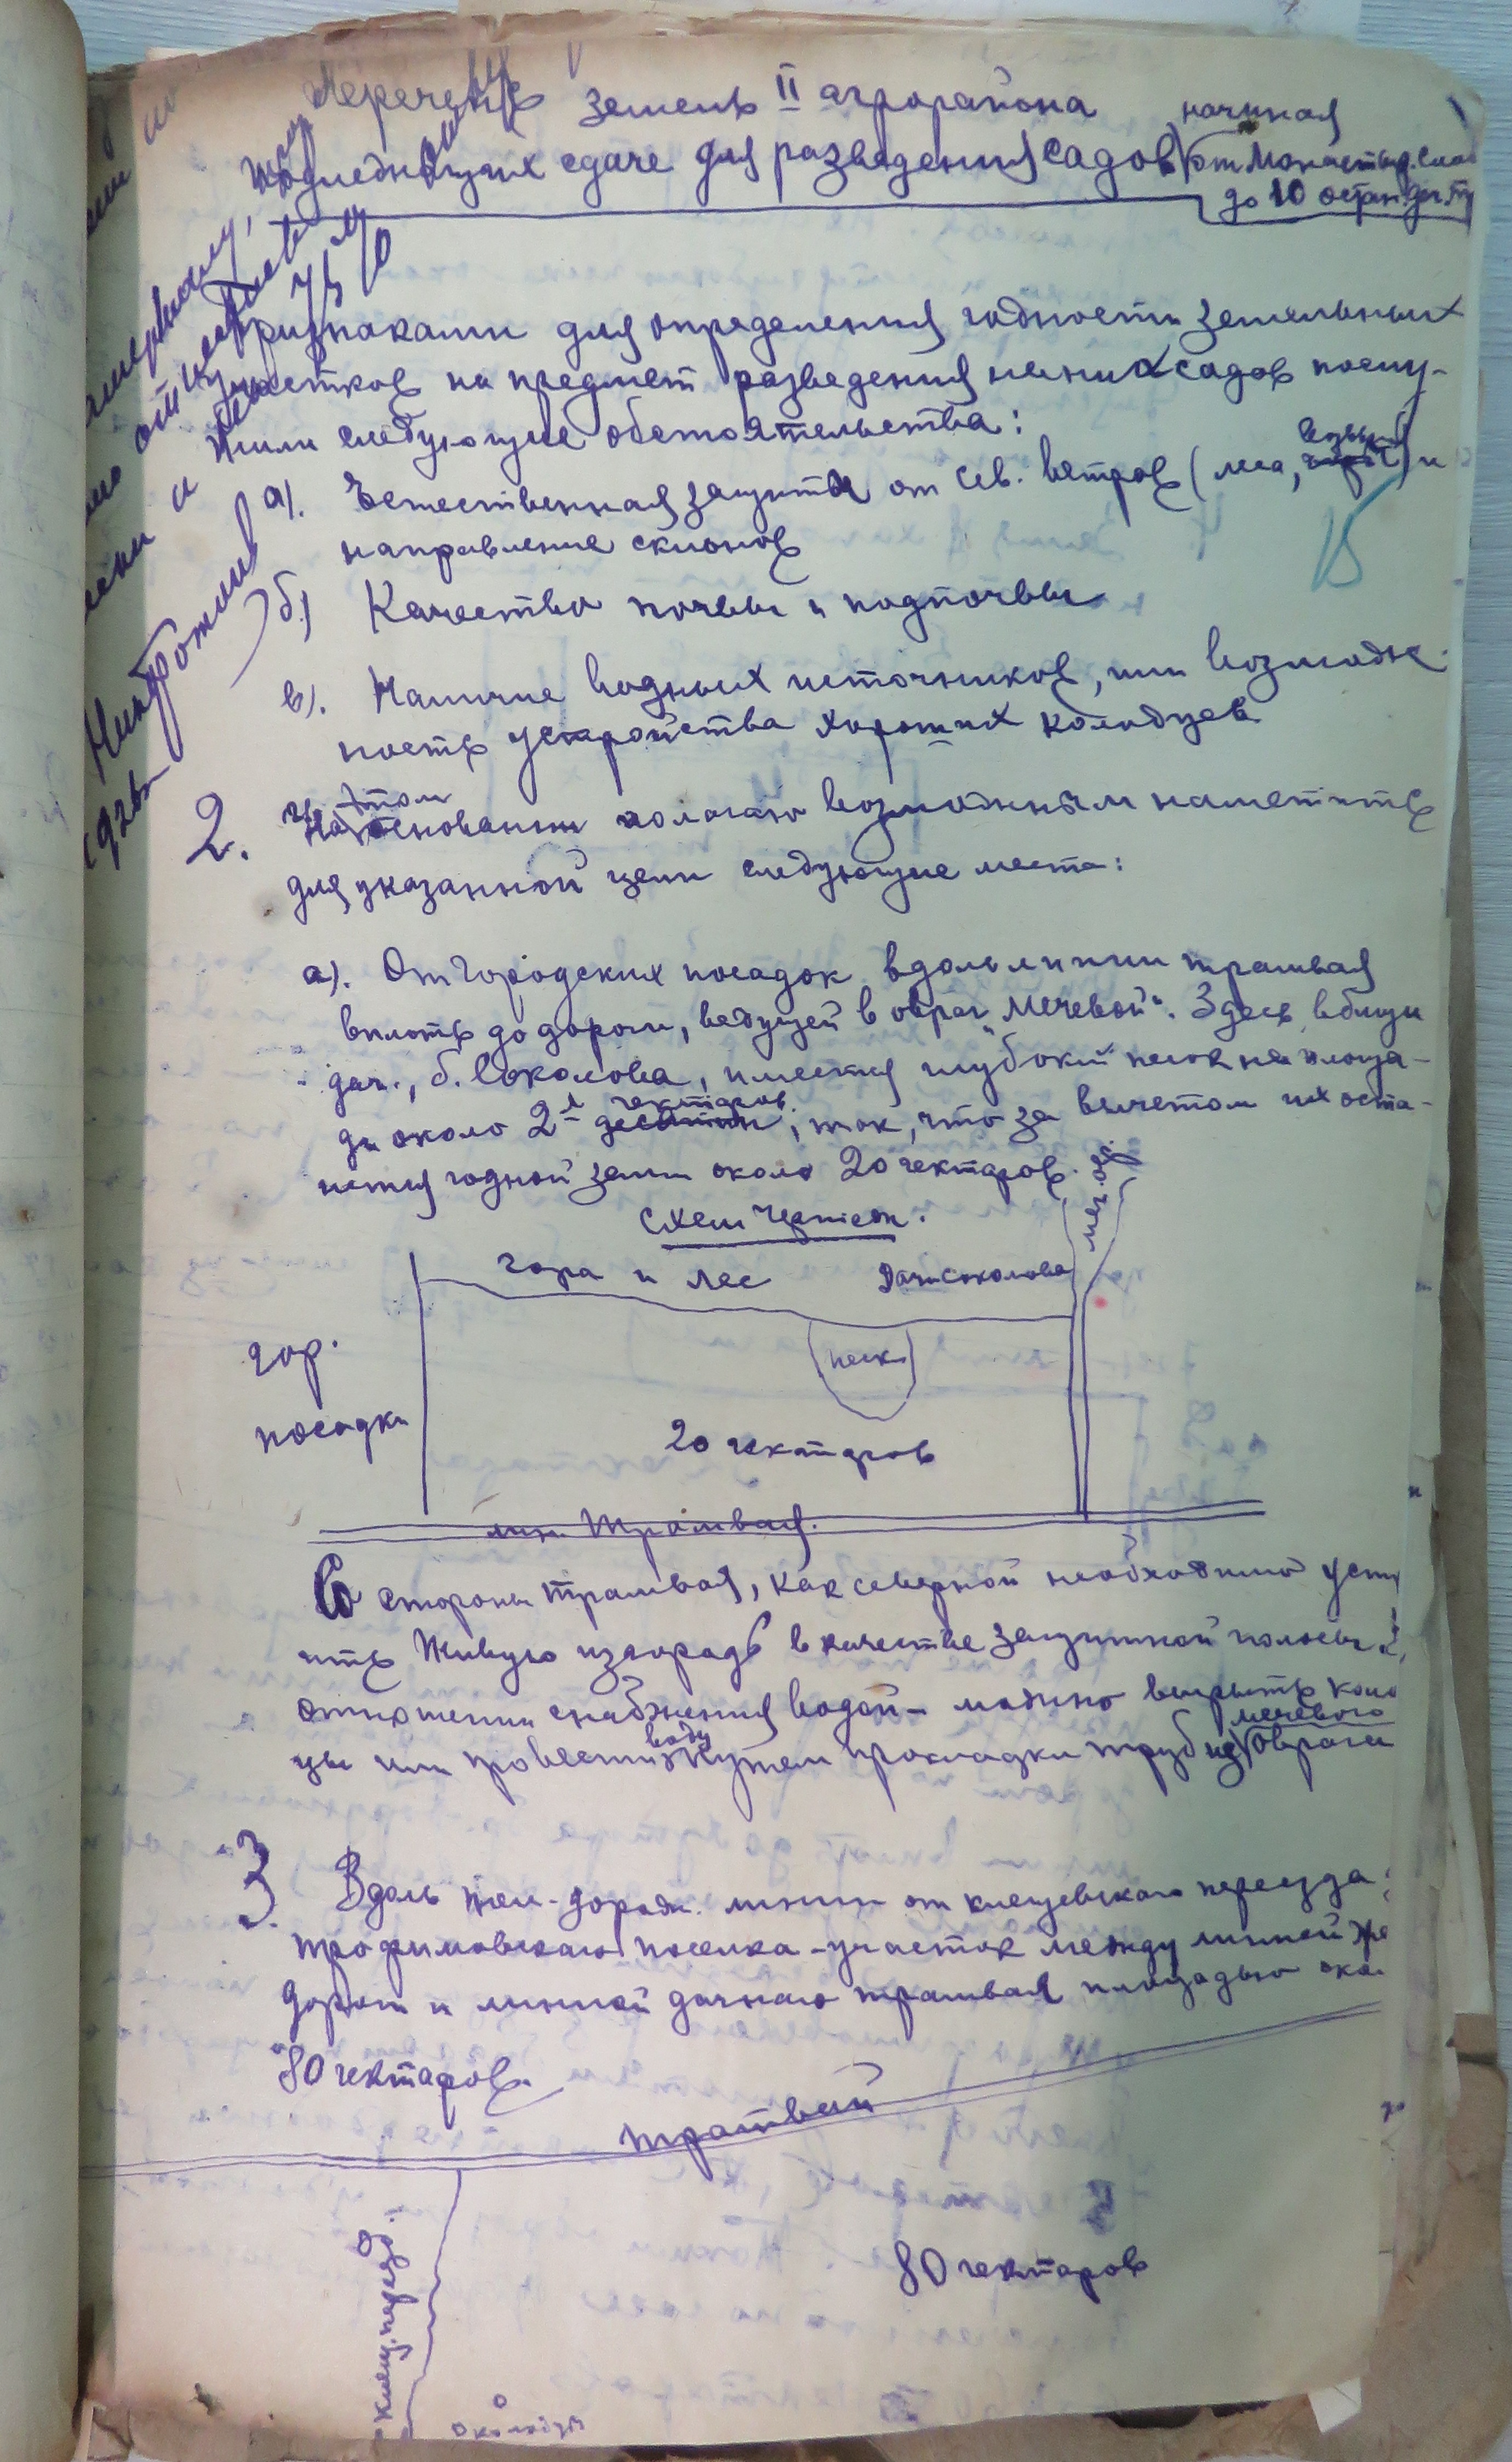 Перечень земель II агрорайона начиная
подлежащих сдаче для разведения садов от Монастыр. Слоб
до 10 остан. дач. тр
Признаками для определения годности земельных
участков на предмет разведения на них садов послу-
жили следующие обстоятельства:
а). Естественная защита от сев. ветров (леса, возвыш) и
направление склонов
б) Качество почвы и подпочвы
в). Наличие водных источников, или возможн-
ность устройства хороших колодцев
2. На этом основании полагаю возможным наметить
для указанной цели следующие места:
а). От городских посадок вдоль линии трамвая
вплоть до дороги, ведущей в овраг „Мечевой“. Здесь вблизи
дач., б. Соколова, имеется глубокий песок на площа-
ди около 2х гектаров, так, что за вычетом их оста-
нется годной земли около 20 гектаров.
Схем чертеж.
меч. ов.
гора и лес
Дачи Соколова
гор.
посадки
песк
20 гектаров
лин. Трамвая.
Со стороны трамвая, как северной необходимо уст
ить живую изгородь в качестве защитной полосы. В
отношении снабжения водой - можно вырыть коло
цы или провести воду путем прокладки труб из мечевого оврага
3. Вдоль жел-дорож. линии от клещевского переезда
трофимовского поселка - участок между линией же
дороги и линией дачного трамвая площадью око
80 гектаров.
трамвай
клещ. переезд.
80 гектаров
колодцы